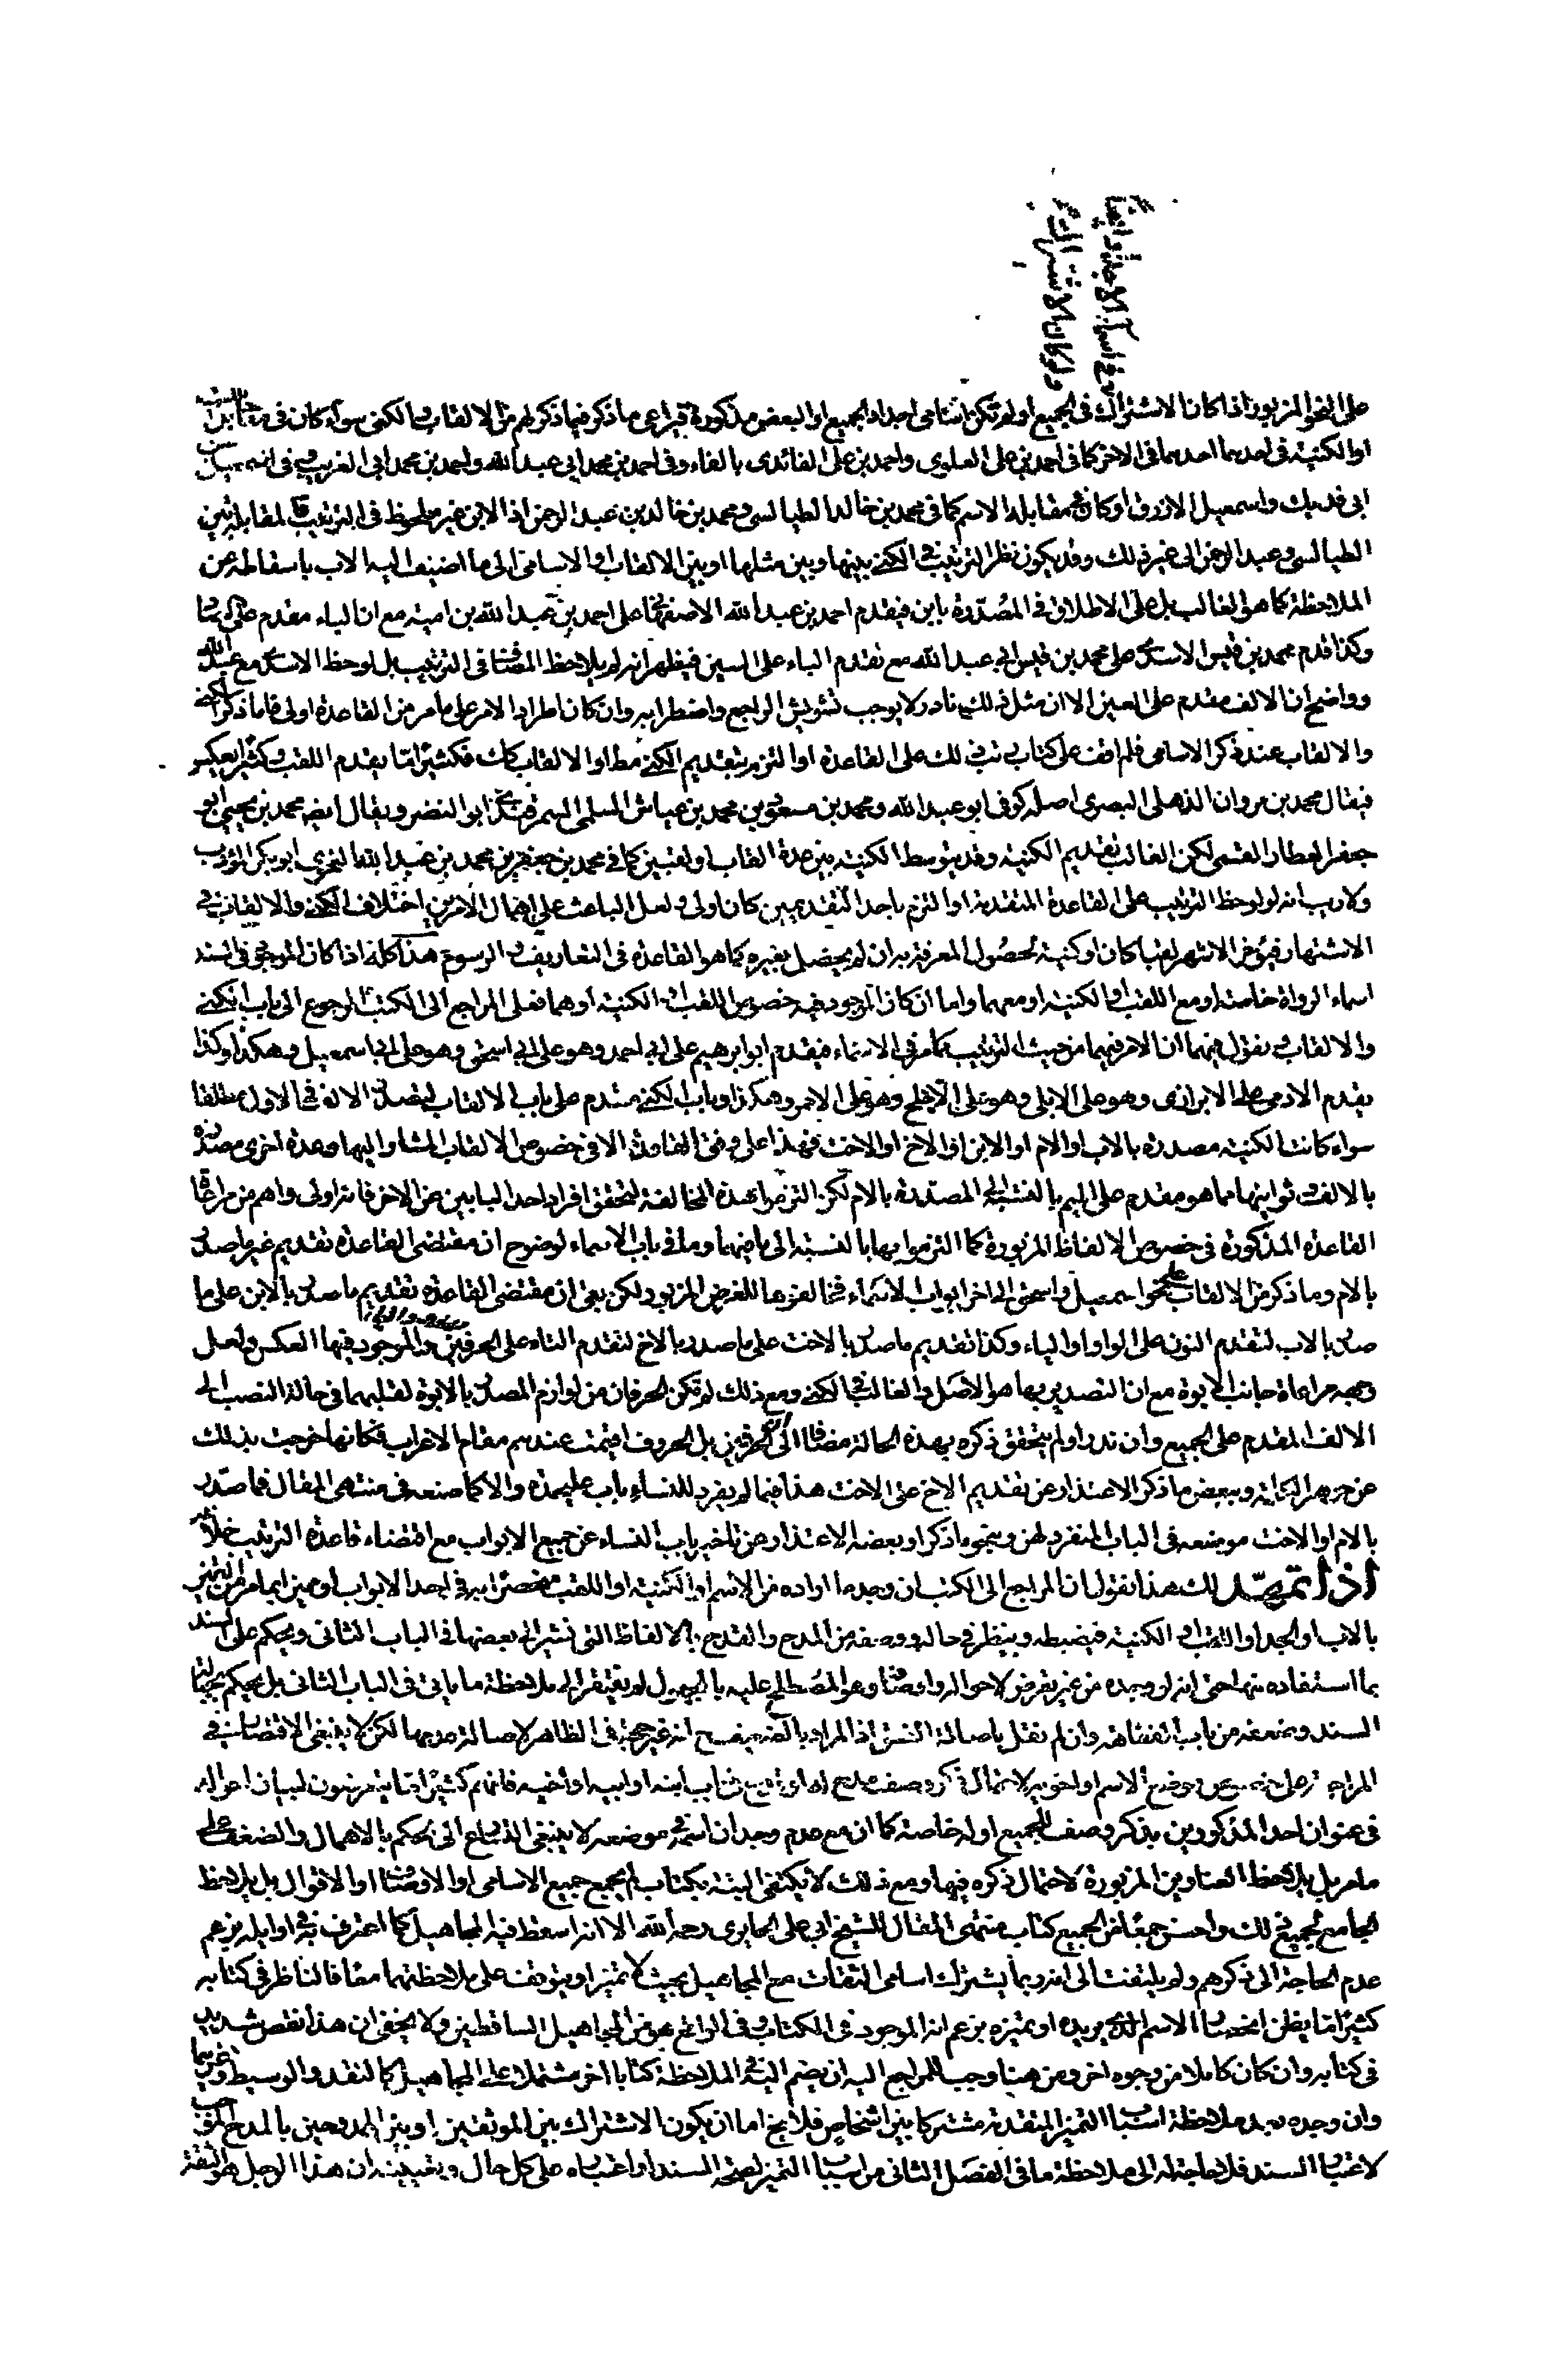 ولو كان الاشتراك
في اسماء الاجداد ايضا
على النحو المزبور اذا كان الاشتراك في الجميع او لم تكن اسامي اجداد الجميع او البعض مذكورة فيراعى ما ذكر فيما ذكر لهم من الالقاب والكنى سواء كان في مقابل
او الكنية في احدهما احدهما في الاخر كما في احمد بن على العلوى واحمد بن على الفائدى بالفاء وفى احمد بن محمد ابى عبد الله واحمد بن محمد ابى الغريب وفى اسمعيل بن
ابى فديك واسمعيل الازرق او كان في مقابله الاسم كما في محمد بن خالد الطيالسى ومحمد بن خالد بن عبد الرحمن اذ الابن غير ملحوظ في الترتيب فالمقابلة بين
الطيالسى وعبد الرحمن الى غير ذلك وقد يكون نظر الترتيب في الكنى بينها وبين مثلها او بين الالقاب او الاسامى الى ما اضيف اليه الاب باسقاطه عن
الملاحظة كما هو الغالب بل على الاطلاق في المصدرة بابن فيقدم احمد بن عبد الله الاصفهانى على احمد بن عبد الله بن امية مع ان الباء مقدم على
وكذا قدم محمد بن قيس الاسدى على محمد بن قيس ابى عبد الله مع تقدم الباء على السين فيظهر انه لم يلاحظ المضاف في الترتيب بل لوحظ الاسدى مع عبد الله
وواضح ان الالف مقدم على العين الا ان مثل ذلك نادر لا يوجب تشويش المراجع واضطرابه وان كان اطراد الامر على ما مر من القاعدة اولى فاما ذكر الكنى
والالقاب عند ذكر الاسامى فلم اقف على كتاب رتب ذلك على القاعدة او التزم بتقديم الكنى مط او الالقاب كك فكثيرا ما يقدم اللقب وكثيرا يعكس
فيقال محمد بن مروان الذهلى البصرى اصله كوفى ابو عبد الله ومحمد بن مسعود بن محمد بن عياش السلمى السمرقندى ابو النضر ويقال ايضا محمد بن يحيى ابو
جعفر العطار القمى لكن الغالب تقديم الكنية وقد يتوسط الكنية بين عدة القاب او لقبين كما في محمد بن جعفر بن محمد بن عبد الله النحوى ابو بكر المؤدب
ولا ريب انه لو لوحظ الترتيب على القاعدة المتقدمة او التزم باحد التقديمين كان اولى ولعل الباعث على اهمال الامرين اختلاف الكنى والالقاب في
الاشتهار فيؤخر الاشهر لقبا كان او كنية لحصول المعرفة به ان لم يحصل بغيره كما هو القاعدة في التعاريف والرسوم هذا كله اذا كان الموجود في السند
اسماء الرواة خاصة او مع اللقب او الكنية او معهما واما ان كان الموجود فيه خصوص اللقب او الكنية او هما فعلى المراجع الى الكتب الرجوع الى باب الكنى
والالقاب ونقول فيهما ان الامر فيهما من حيث الترتيب كما مر في الاسماء فيقدم ابو ابرهيم على ابى احمد وهو على ابى اسحق وهو على ابى اسمعيل وهكذا وكذا
يقدم الادمى على الابزارى وهو على الابلى وهو على الابلج وهو على الاحمر وهكذا وباب الكنى مقدم على باب الالقاب لتصدر الالف في الاول مطلقا
سواء كانت الكنية مصدرة بالاب او الام او الابن او الاخ او الاخت فهذا على وفق القاعدة الا في خصوص الالقاب المشار اليها وعدة اخرى مصدرة
بالالف ثوانيها مما هو مقدم على الميم بالنسبة الى المصدرة بالام لكن التزموا هذه المخالفة لتحقق افراد احد البابين عن الاخر فانه اولى واهم من مراعاة
القاعدة المذكورة في خصوص الالفاظ المزبورة كما التزموا بها بالنسبة الى ما فيهما وما في باب الاسماء لوضوح ان مقتضى القاعدة تقديم غير ما صدر
بالام وما ذكر من الالقاب على نحو اسمعيل واسحق الى اخر ابواب الاسماء فخالفوها للغرض المزبور لكن بقى ان مقتضى القاعدة تقديم ما صدر بالابن على ما
صدر بالاب لتقدم النون على الواو او الياء وكذا تقديم ما صدر بالاخت على ما صدر بالاخ لتقدم التاء على الحرفين والموجود فيها العكس ولعل
وجهه مراعاة جانب الابوة مع ان التصدير بها هو الاصل والغالب في الكنى ومع ذلك لم تكن الحرفان من لوازم المصدر بالابوة لقلبهما في حالة النصب الى
الالف المقدم على الجميع وان ندر او لم يتحقق ذكره بهذه الحالة مضافا الى ان الحرفين بل الحروف اقيمت عندهم مقام الاعراب فكانها خرجت بذلك
عن جوهر الكلمة وببعض ما ذكر الاعتذار عن تقديم الاخ على الاخت هذا فيما لم يفرد للنساء باب عليحدة والا كما صنعه في منتهى المقال فما صدر
بالام او الاخت موضعه في الباب المنفرد لهن وبنحو ما ذكر او بعضه الاعتذار عن تاخير باب النساء عن جميع الابواب مع اقتضاء قاعدة الترتيب خلافه
اذا تمهد لك هذا نقول ان المراجع الى الكتب ان وجد ما اراده من الاسم او الكنية او اللقب منحصرا به في احد الابواب او ميز ايما مر من التميز
بالاب او الجد او اللقب او الكنية فيضبطه وينظر في حاله ووصفه من المدح والقدح بالالفاظ التى نشير الى بعضها في الباب الثانى ويحكم على السند
بما استفاده منها حتى انه لو وجده من غير تعرض لاحواله واوصافه وهو المصطلح عليه بالمجهول لم يفتقر الى ملاحظة ما ياتى في الباب الثانى بل يحكم بجهالة
السند وضعفه من باب الفقاهة وان لم نقل باصالة الفسق اذ المراد بالضعيف انه غير حجة في الظاهر لاصالة عدمها لكن لا ينبغى الاقتصار في
المراجعة على خصوص موضع الاسم او اخويه لاحتمال ذكر وصف مدح له او قدح في باب ابنه او ابيه او اخيه فانهم كثيرا ما يتعرضون لبيان احواله
في عنوان احد المذكورين بذكر وصف للجميع او له خاصة كما ان مع عدم وجدان اسمه في موضعه لا ينبغى التسارع الى الحكم بالاهمال والضعف على
ما مر بل يلاحظ العناوين المزبورة لاحتمال ذكره فيها ومع ذلك لا يكتفى البتة بكتاب لم يجمع جميع الاسامى او الاوصاف او الاقوال بل يلاحظ
الجامع لجميع ذلك واحسن جمعا من الجميع كتاب منتهى المقال للشيخ ابى على الحايرى رحمه الله الا انه اسقط فيه المجاهيل كما اعترف به في اوايله بزعم
عدم الحاجة الى ذكرهم ولم يلتفت الى انه ربما يشترك اسامى الثقات مع المجاهيل بحيث لا تميز او يتوقف على ملاحظتهما معا فالناظر في كتابه
كثيرا ما يظن انحصار الاسم الذى يريده او تميزه بزعم انه الموجود في الكتاب وفى الواقع هو من المجاهيل الساقطين ولا يخفى ان هذا نقص شديد
في كتابه وان كان كاملا من وجوه اخر ومن هنا وجب للمراجع اليه ان يضم اليه في الملاحظة كتابا اخر مشتملا على المجاهيل كالنقد والوسيط وغيرهما
وان وجده بعد ملاحظة اسباب التميز المتقدمة مشتركا بين اشخاص فلا يخ اما ان يكون الاشتراك بين الموثقين او بين الممدوحين بالمدح الموجب
لاعتبار السند فلا حاجة له الى ملاحظة ما في الفصل الثانى من اسباب التميز لصحة السند او اعتباره على كل حال وتعيينه ان هذا الرجل هو الثقة